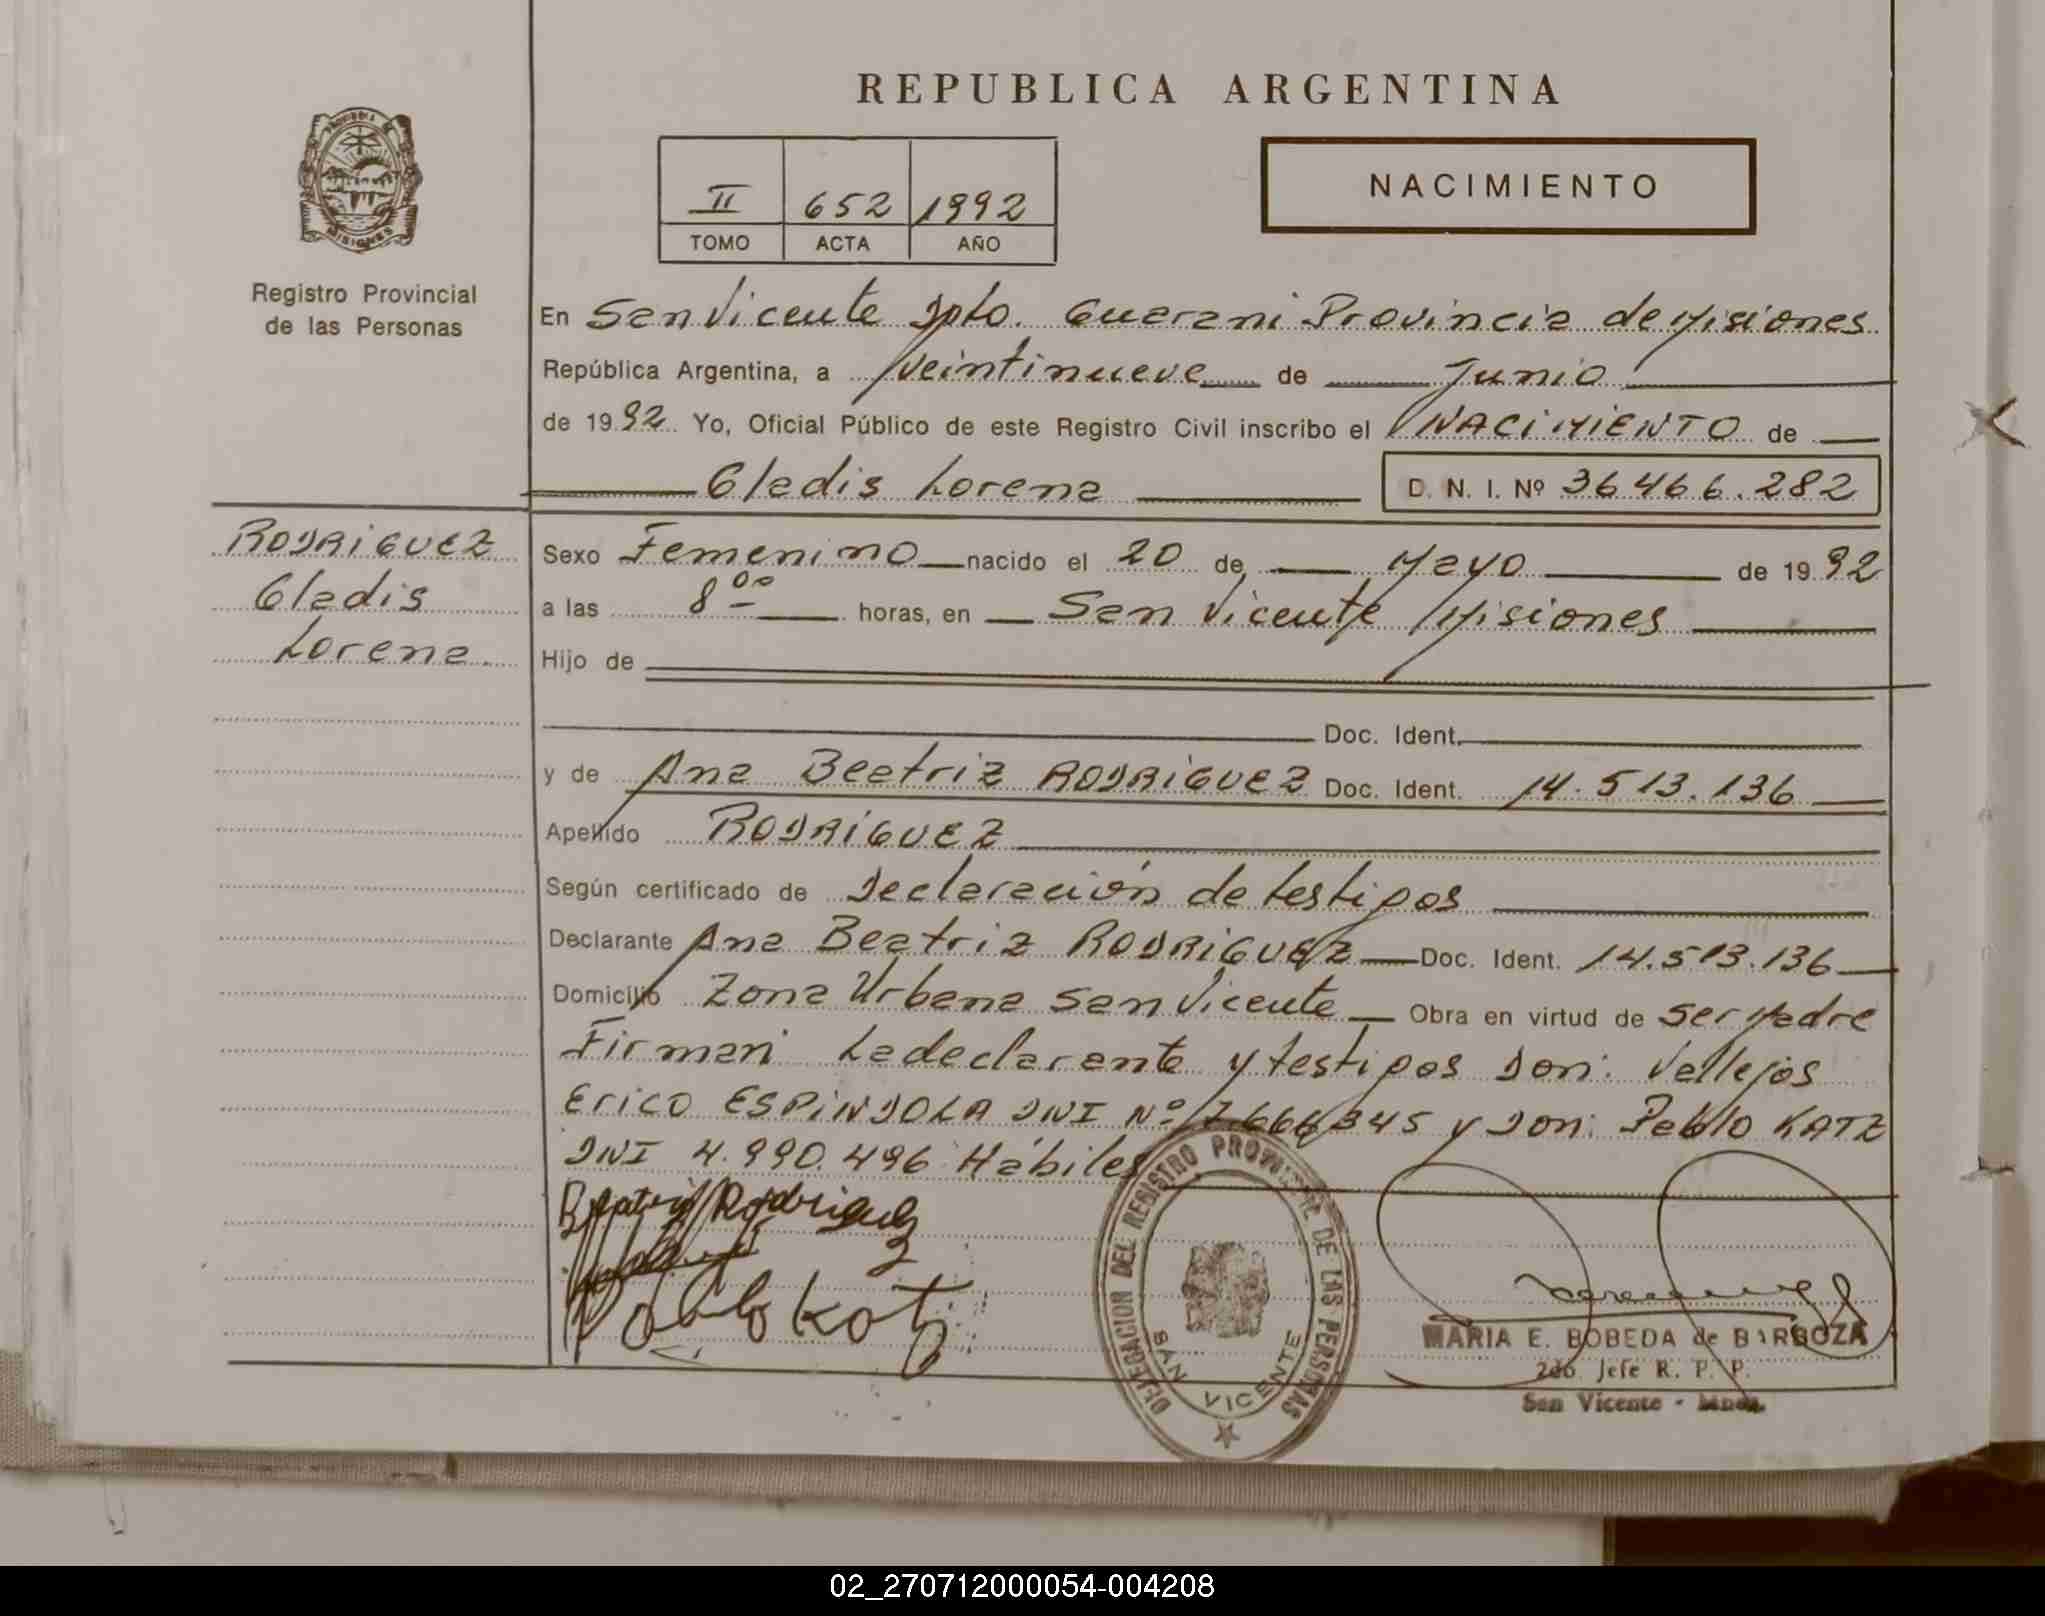 REPUBLICA ARGENTINA
II 652 1992
TOMO ACTA AÑO
NACIMIENTO
PROVINCIA DE
MISIONES
Registro Provincial
de las Personas
En San Vicente Dpto. Guarani Provincia de Misiones
República Argentina, a Veintinueve de Junio
de 1992 Yo, Oficial Público de este Registro Civil inscribo el NACIMIENTO de
Gladis Lorena D. N. I. Nº 36466.282
RODRIGUEZ
Gladis
Lorena
Sexo Femenino nacido el 20 de Mayo de 1992
a las 8 00 horas, en San Vicente Misiones
Hijo de
Doc. Ident.
y de Ana Beatriz RODRIGUEZ Doc. Ident. 14.513.136
Apellido RODRIGUEZ
Según certificado de Declaración de testigos
Declarante Ana Beatriz RODRIGUEZ Doc. Ident. 14.513.136
Domicilio Zona Urbana San Vicente Obra en virtud de ser Madre
Firman La declarante y testigos Don: Vallejos
Erico ESPINDOLA DNI Nº 7.666.345 y Don: Pablo KATZ
DNI 4.990.496 Hábiles
Beatriz Rodriguez
Pablo Katz
DELEGACION DEL REGISTRO PROVINCIAL DE LAS PERSONAS
SAN VICENTE
MARIA E. BOBEDA de BARBOZA
2do. Jefe R. P. P.
San Vicente - Mnes.
02_270712000054-004208